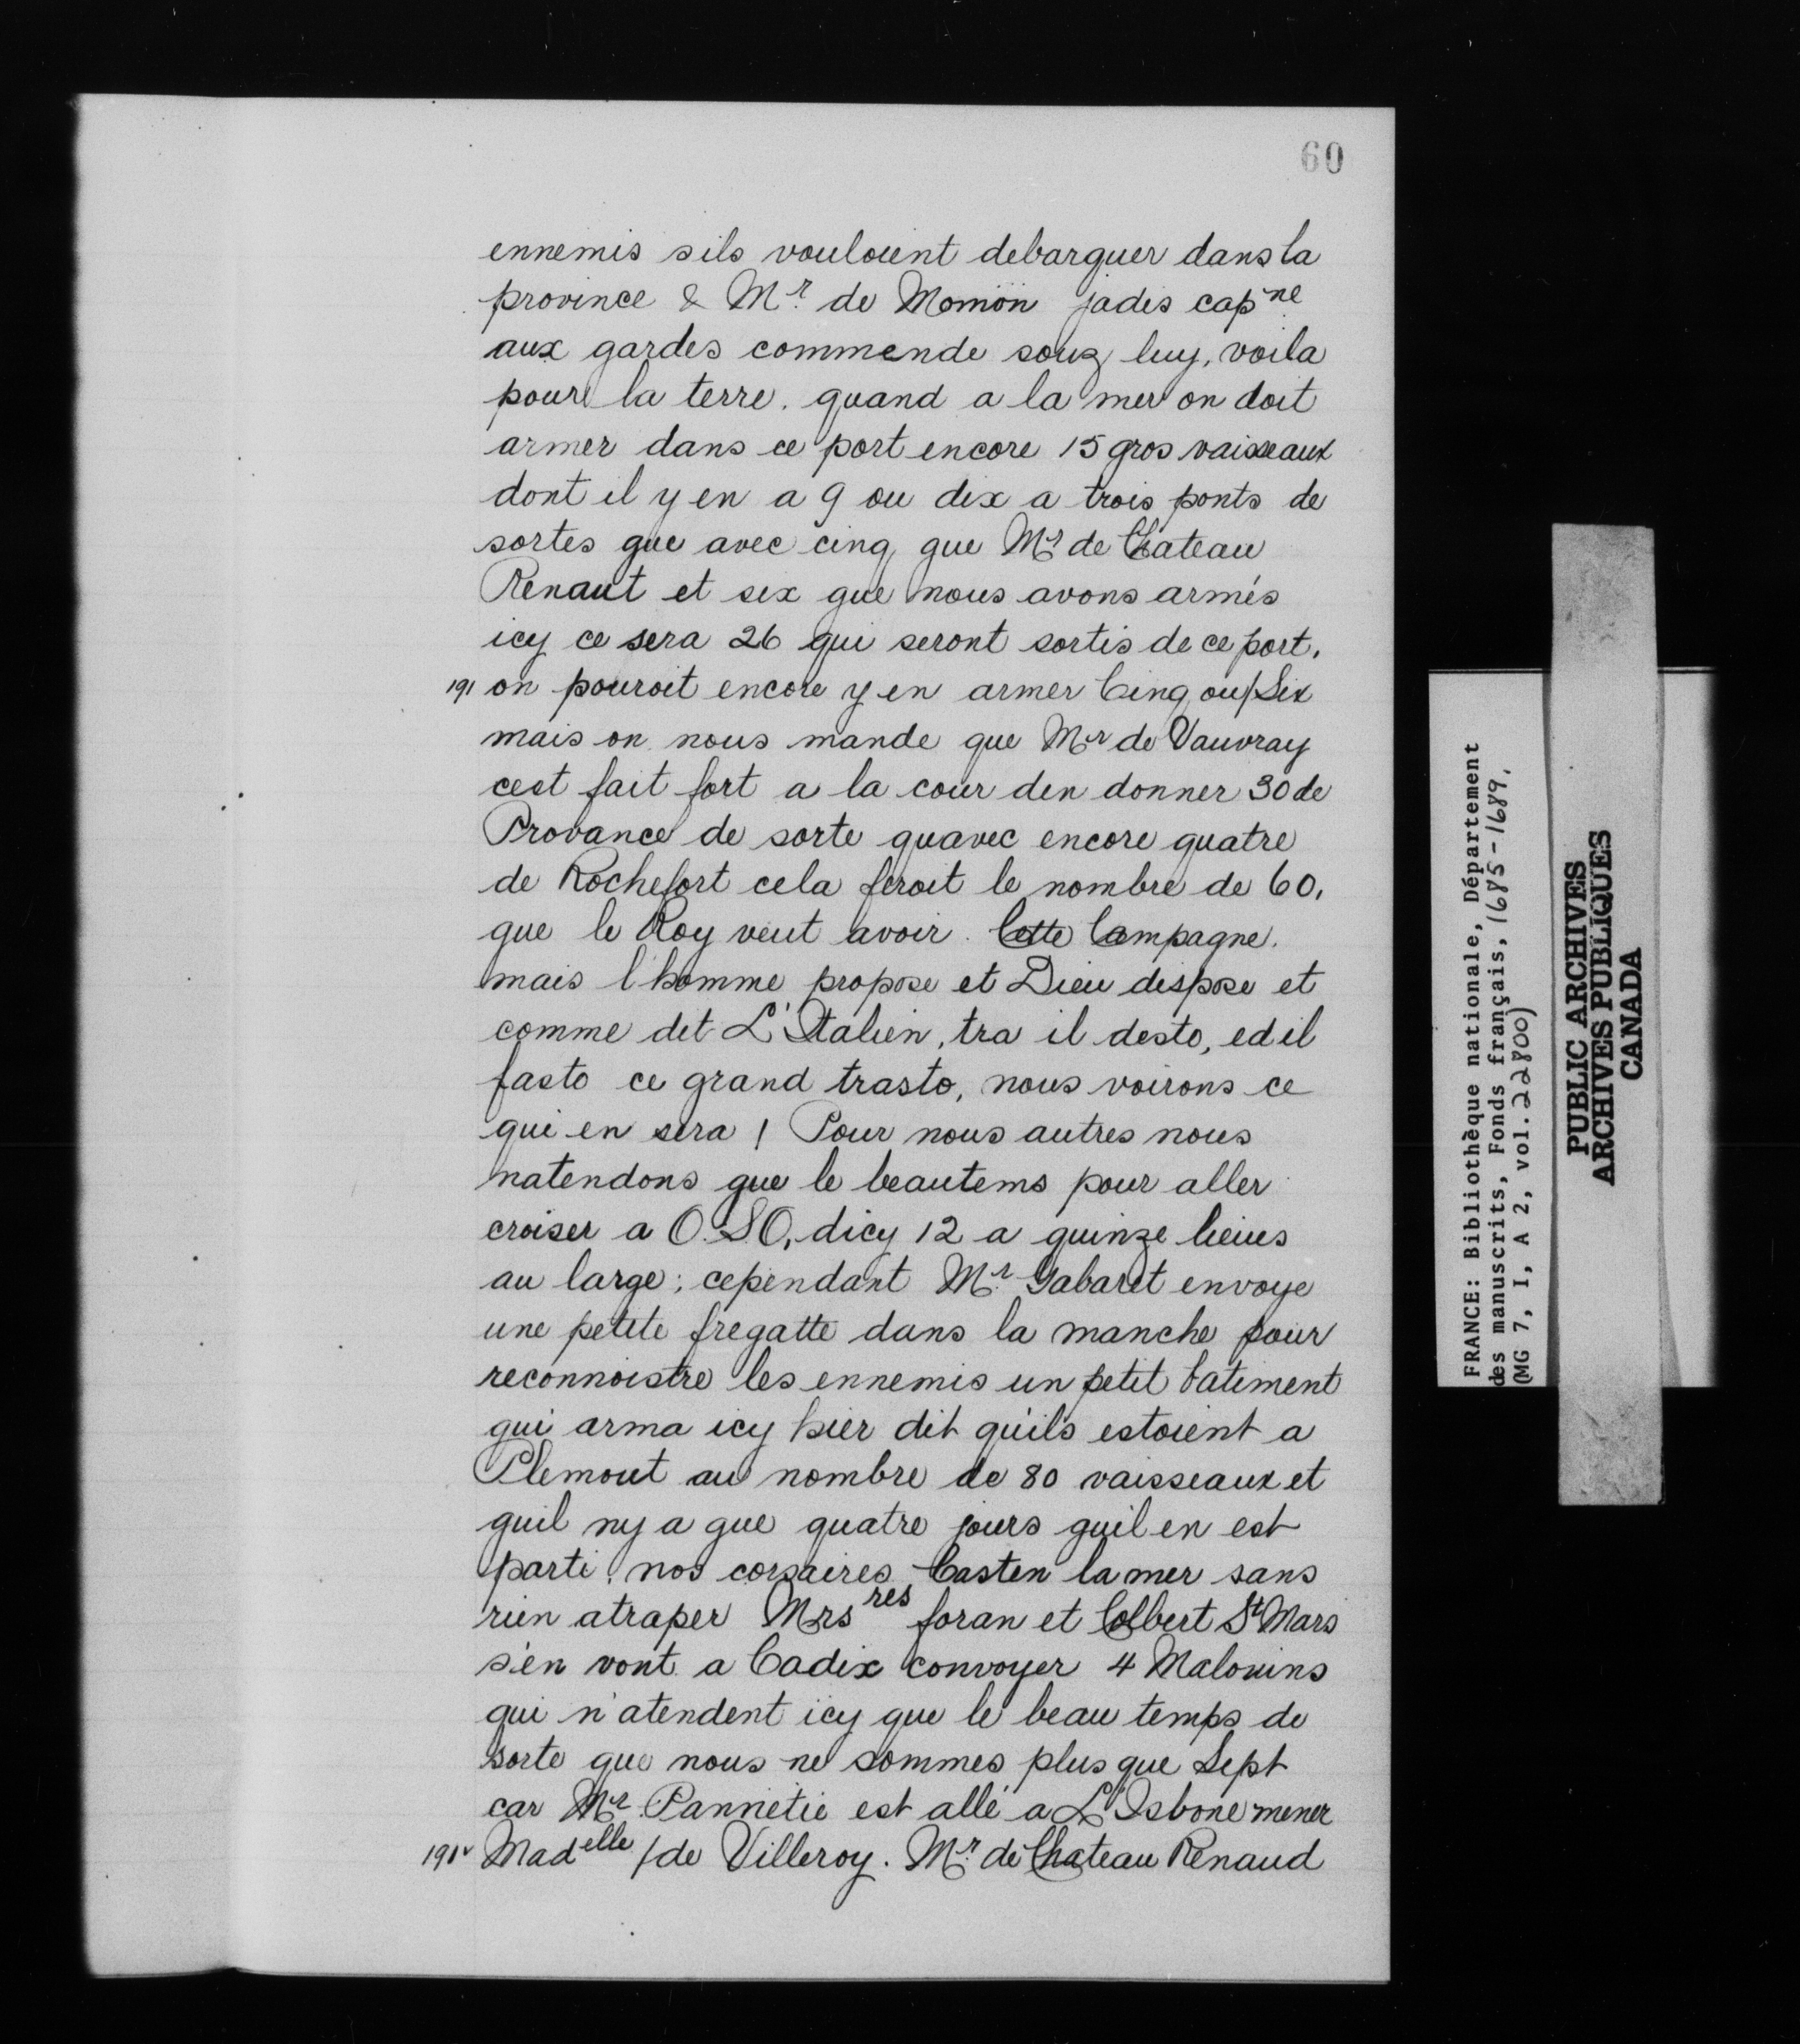 60
ennemis sils vouloient debarquer dans la
province & Mr. de Momön jadis capne
aux gardes commende souz luy, voila
pour la terre. quand a la mer on doit
armer dans ce port encore 15 gros vaisseaux
dont il y en a 9 ou dix a trois ponts de
sortes que avec cinq que Mr de Chateau
Renaut et six que nous avons armés
icy ce sera 26 qui seront sortis de ce port.
191 on pouroit encore y en armer Cinq ou/Six
mais on nous mande que Mr de Vauvray
cest fait fort a la cour den donner 30 de
Provance de sorte quavec encore quatre
de Rochefort cela feroit le nombre de 60,
que le Roy veut avoir. Cette Campagne.
mais l'homme propose et Dieu dispose et
comme dit L'Italien, tra il desto, ed il
fasto ce grand trasto, nous voirons ce
qui en sera ! Pour nous autres nous
natendons que le beautems pour aller
croiser a O.SO, dicy 12 a quinze lieues
au large; cependant Mr. Gabaret envoye
une petite fregatte dans la manche pour
reconnoistre les ennemis un petit batiment
qui arma icy hier dit qu'ils estoient a
Plemout au nombre de 80 vaisseaux et
quil ny a que quatre jours quil en est
parti. nos corsaires Casten la mer sans
rien atraper Mrs res foran et Colbert St Mars
s'en vont a Cadix convoyer 4 Malouins
qui n'atendent icy que le beau temps de
sorte que nous ne sommes plus que Sept
car Mr. Pannetie est allé a L'Isbone mener
191v Madelle /de Villeroy. Mr. de Chateau Renaud
FRANCE: Bibliothèque nationale, Département
des manuscrits, Fonds français, 1685-1689.
(MG 7, I, A 2, vol. 22800)
PUBLIC ARCHIVES
ARCHIVES PUBLIQUES
CANADA